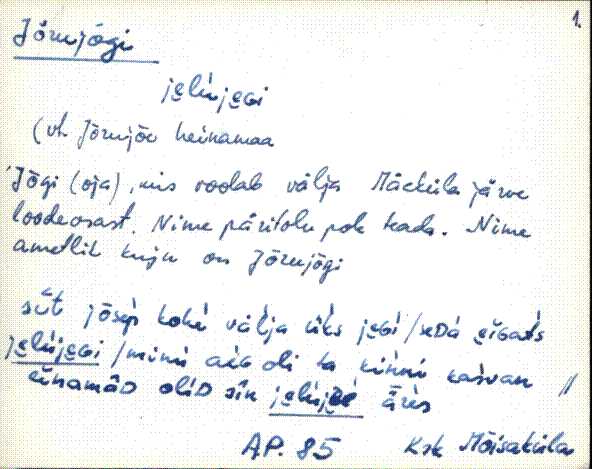 1.
Jõrujõgi
jelıijegi
(vt. Jõrujõe heinamaa
Jõgi (oja), mis voolab välja Mäeküla järve
loodeosast. Nime päritolu pole teada. Nime
ametlik kuju on Jõrujõgi
sīt jõsep kohi välja üks jegi / seDa
jelıijegi / minu aig oli ta kinni kasvan //
einamāD oliD sīn äres
AP. 85 Ksk Mõisaküla